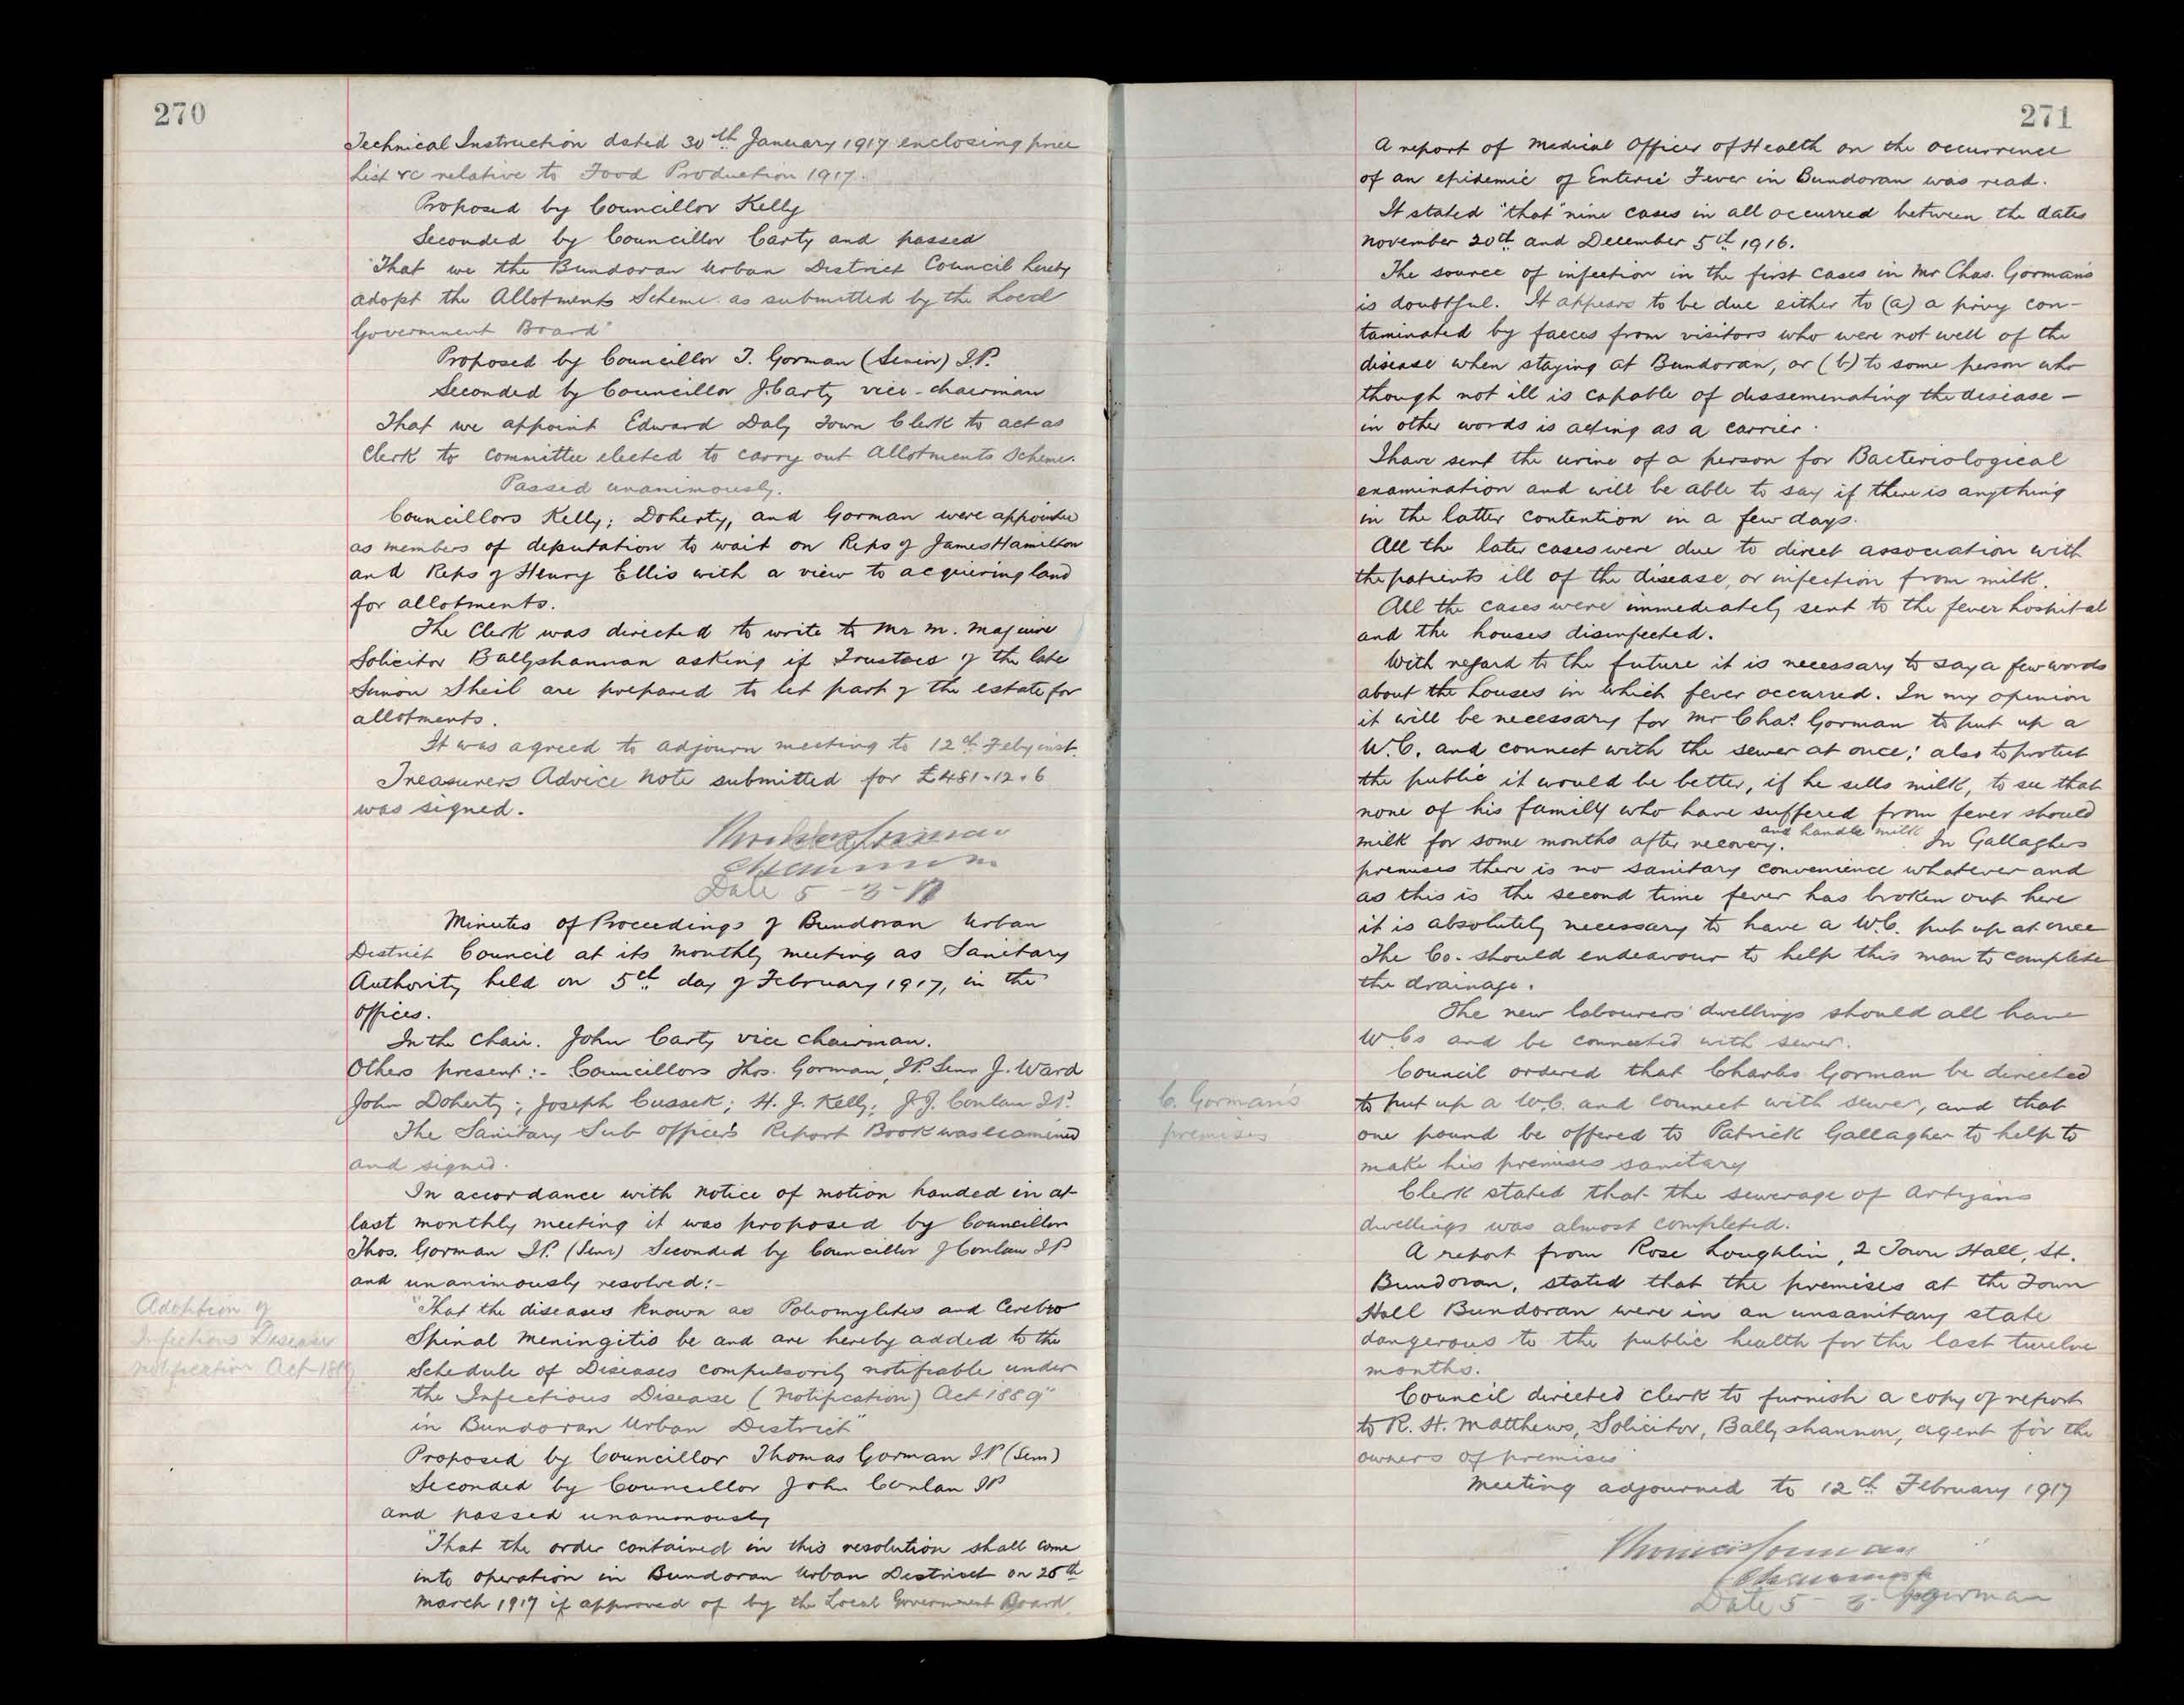 270
Technical Instruction dated 30th January 1917 enclosing price
List &c relative to Food Production 1917.
Proposed by Councillor Kelly
Seconded by Councillor Carty and passed
"That we the Bundoran Urban District Council hereby
adopt the Allotments Scheme as submitted by the Local
Government Board"
Proposed by Councillor T. Gorman (Senior) J.P.
Seconded by Councillor J. Carty vice-chairman
That we appoint Edward Daly Town Clerk to act as
Clerk to committee elected to carry out Allotments Scheme.
Passed unanimously.
Councillors Kelly; Doherty, and Gorman were appointed
as members of deputation to wait on Reps of James Hamilton
and Reps of Henry Ellis with a view to acquiering land
for allotments.
The Clerk was directed to write to Mr M. Maguire
Solicitor Ballyshannan asking if Trustees of the late
Simon Sheil are prepared to let part of the estate for
allotments.
It was agreed to adjourn meeting to 12th Feby inst.
Treasurers Advice Note submitted for £481-12-6
was signed.
Chairman
Date 5-3-17
Minutes of Proceedings of Bundoran Urban
District Council at its monthly meeting as Sanitary
Authority held on 5th day of February 1917, in the
offices.
In the Chair. John Carty vice Chairman.
Others present:- Councillors Thos. Gorman, J.P. Senr J. Ward
John Doherty; Joseph Cussack; H. J. Kelly; J.J. Conlan J.P.
The Sanitary Sub officer's Report Book was examined
and signed.
In accordance with notice of motion handed in at
last monthly meeting it was proposed by Councillor
Thos. Gorman J.P. (Senr) Seconded by Councillor J Conlan JP
and unanimously resolved:-
"That the diseases known as Poliomylites and Cerebro
Spinal Meningitis be and are hereby added to the
Schedule of Diseases compulsorily notifiable under
the Infectious Disease (Notification) Act 1889"
in Bundoran Urban District"
Adoption of
Infectious Diseases
Notification Act 1889
Proposed by Councillor Thomas Gorman J.P (Senr)
Seconded by Councillor John Conlan JP
and passed unamonously
"That the order contained in this resolution shall come
into operation in Bundoran Urban District on 26th
March 1917 if approved of by the Local Government Board
271
A report of Medical Officer of Health on the occurrence
of an epidemic of Enteric Fever in Bundoran was read.
It stated "that" nine cases in all occurred between the dates
November 20th and December 5th 1916.
The source of infection in the first cases in Mr Chas. Gorman's
is doubtful. It appears to be due either to (a) a privy con-
taminated by faeces from visitors who were not well of the
disease when staying at Bundoran, or (b) to some person who
though not ill is capable of disseminating the disease -
in other words is acting as a carrier.
I have sent the urine of a person for Bacteriological
examination and will be able to say if there is anything
in the latter contention in a few days.
All the later cases were due to direct association with
the patients ill of the disease, or infection from milk.
All the cases were immediately sent to the fever hospital
and the houses disinfected.
With regard to the future it is necessary to say a few words
about the houses in which fever occurred. In my opinion
it will be necessary for Mr Chas. Gorman to put up a
W.C. and connect with the sewer at once; also to protect
the public it would be better, if he sells milk, to see that
none of his family who have suffered from fever should
milk for some months after recovery. and handle milk In Gallaghers
premises there is no sanitary convenience whatever and
as this is the second time fever has broken out here
it is absolutely necessary to have a W.C. put up at once
The Co. should endeavour to help this man to complete
the drainage.
The new labourers' dwellings should all have
W.Cs and be connected with sewer.
C. Gorman's
premises
Council ordered that Charles Gorman be directed
to put up a W.C. and connect with sewer, and that
one pound be offered to Patrick Gallagher to help to
make his premises sanitary
Clerk stated that the sewerage of Artizans
dwellings was almost completed.
A report from Rose Loughlin, 2 Town Hall, St.
Bundoran, stated that the premises at the Town
Hall Bundoran were in an unsanitary state
dangerous to the public health for the last twelve
months.
Council directed clerk to furnish a copy of report
to R. H. Matthews, Solicitor, Ballyshannon, agent for the
owners of premises
Meeting adjourned to 12th February 1917
Thomas Gorman
Chairman
Date 5-3-